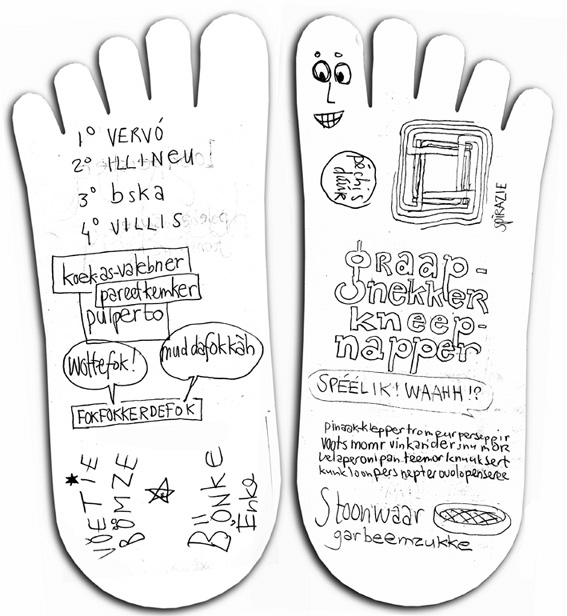 1º VERVÓ
2º ILLINEU
3º bska
4º VILLIS
koek-as-valebner
pareetkemker
pulperto
Wottefok!
muddafokkàh
FOKFOKKERDEFOK
VÖETIE
BÖMZE
BÖNKE
Enko
pechis
duuk
SPIRAZIE
graap-
gnekkler
kneep-
napper
SPÉÉLIK! WAAHH!?
pinaak-klepper trompur perseppir
voots momr vinkander, jnu marx
velaperoni pan teemor knuuksert
kunkloompers nepter ovolopenseree
Stoonwaar
garbeemzukke